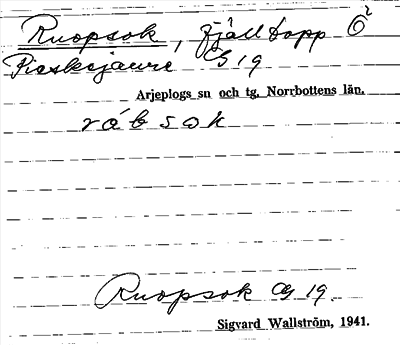 Ruopsok, fjälltopp Ö²
Pieskejaure G 19
Arjeplogs sn och tg. Norrbottens län.
råbsok
Ruopsok G 19.
Sigvard Wallström, 1941.